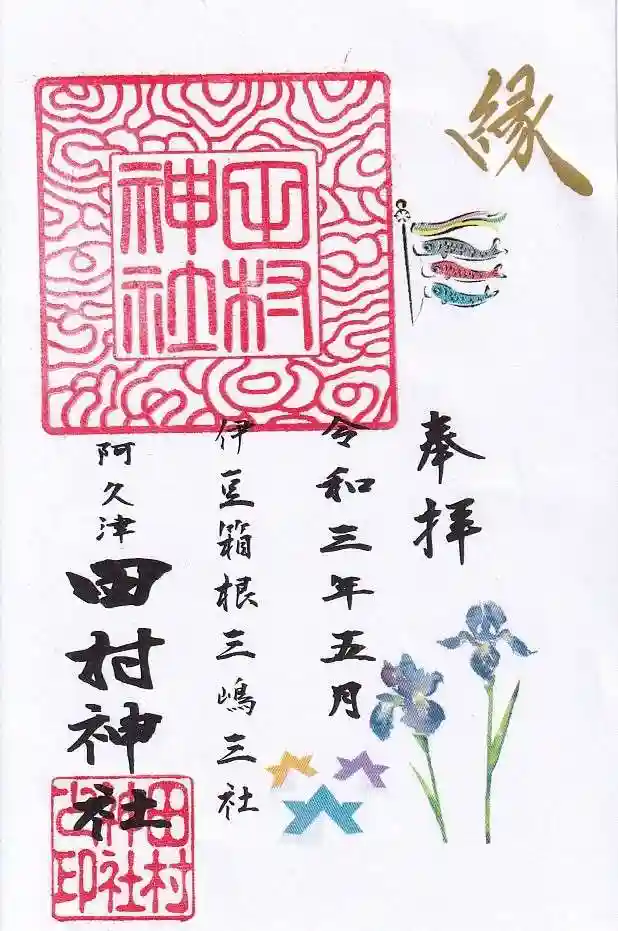 縁
奉拝
令和三年五月
伊豆箱根三嶋三社
阿久津 田村神社
田村
神社
田村
神社
之印